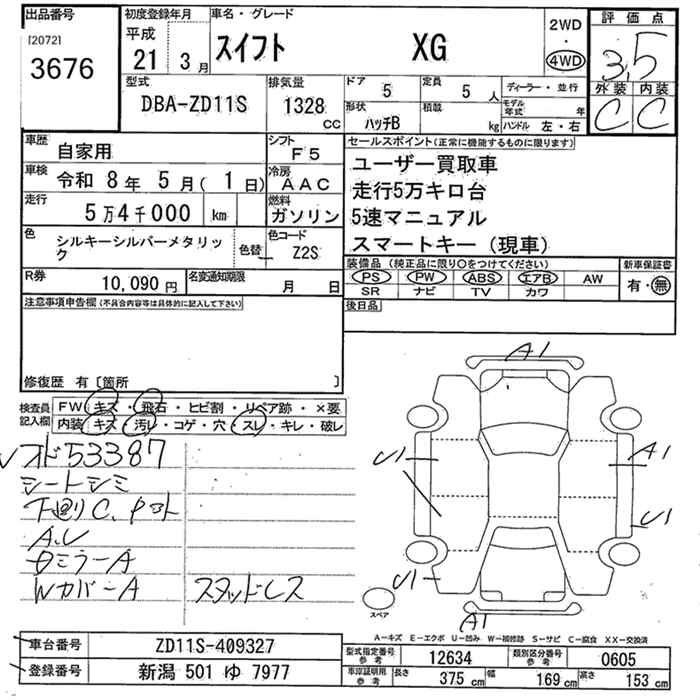 出品番号
[2072]
3676
初度登録年月
平成
21 3月
車名・グレード
スイフト XG
2WD
・
4WD
評価点
3,5
外装 内装
C C
型式
DBA-ZD11S
排気量
1328
cc
ドア
5
定員
5 人
形状
ハッチB
積載
kg
ディーラー・並行
モデル年式 年
ハンドル 左・右
車歴
自家用
シフト
F5
車検
令和 8年 5月( 1日)
冷房
AAC
走行
5万4千000 km
燃料
ガソリン
色
シルキーシルバーメタリック
色替
色コード
Z2S
R券
10,090円
名変通知期限
月 日
セールスポイント(正常に機能するものに限ります)
ユーザー買取車
走行5万キロ台
5速マニュアル
スマートキー(現車)
装備品(純正品に限り○をつけてください)
PS PW ABS エアB AW
SR ナビ TV カワ
新車保証書
有・無
後日品
注意事項申告欄(不具合内容等は具体的に記入して下さい)
修復歴 有〔箇所 〕
検査員記入欄
FW キズ・飛石・ヒビ割・リペア跡・×要
内装 キズ・汚レ・コゲ・穴・スレ・キレ・破レ
53387
シートシミ
下廻りC、
A、U
ミラーA
WカバーA
スタッドレス
A1
U1
A1
U1
U1
A1
スペア
A−キズ E−エクボ U−凹み W−補修跡 S−サビ C−腐食 XX−交換済
車台番号
ZD11S-409327
登録番号
新潟 501 ゆ 7977
型式指定番号
参考
12634
類別区分番号
参考
0605
車庫証明用
参考
長さ
375 cm
幅
169 cm
高さ
153 cm